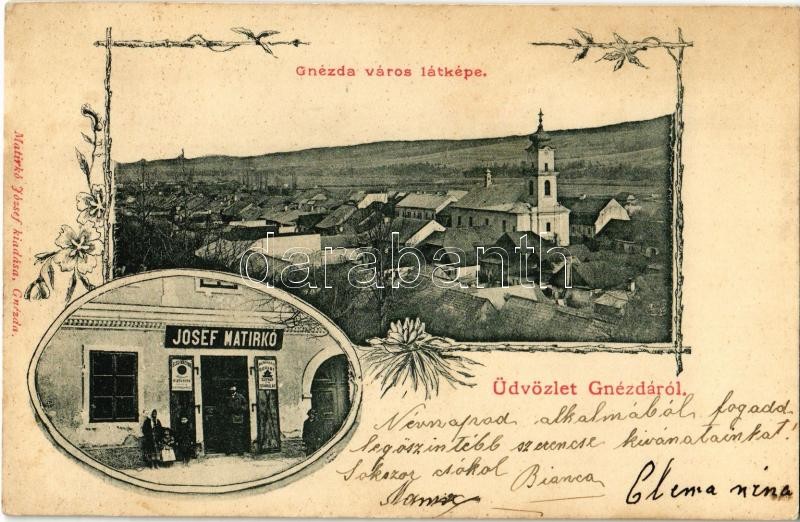 Gnézda város látképe.
Matirkó József kiadása, Gnézda.
darabanth
JOSEF MATIRKÓ
Üdvözlet Gnézdáról.
Névnapod alkalmából fogadd
legöszintébb szerencse kivánatainkat!
Sokszor csókol Bianca
Mama
Clema néna